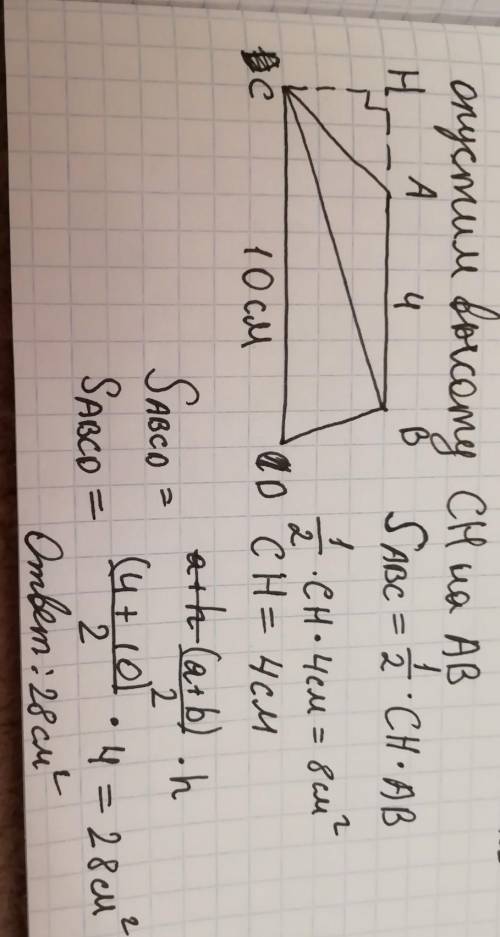 опустим высоту CH на AB
H A 4 B
C 10 см D
S ABC = 1/2 · CH · AB
1/2 · CH · 4см = 8см²
CH = 4см
S ABCD = (a+b)/2 · h
S ABCD = (4 + 10)/2 · 4 = 28см²
Ответ: 28см²